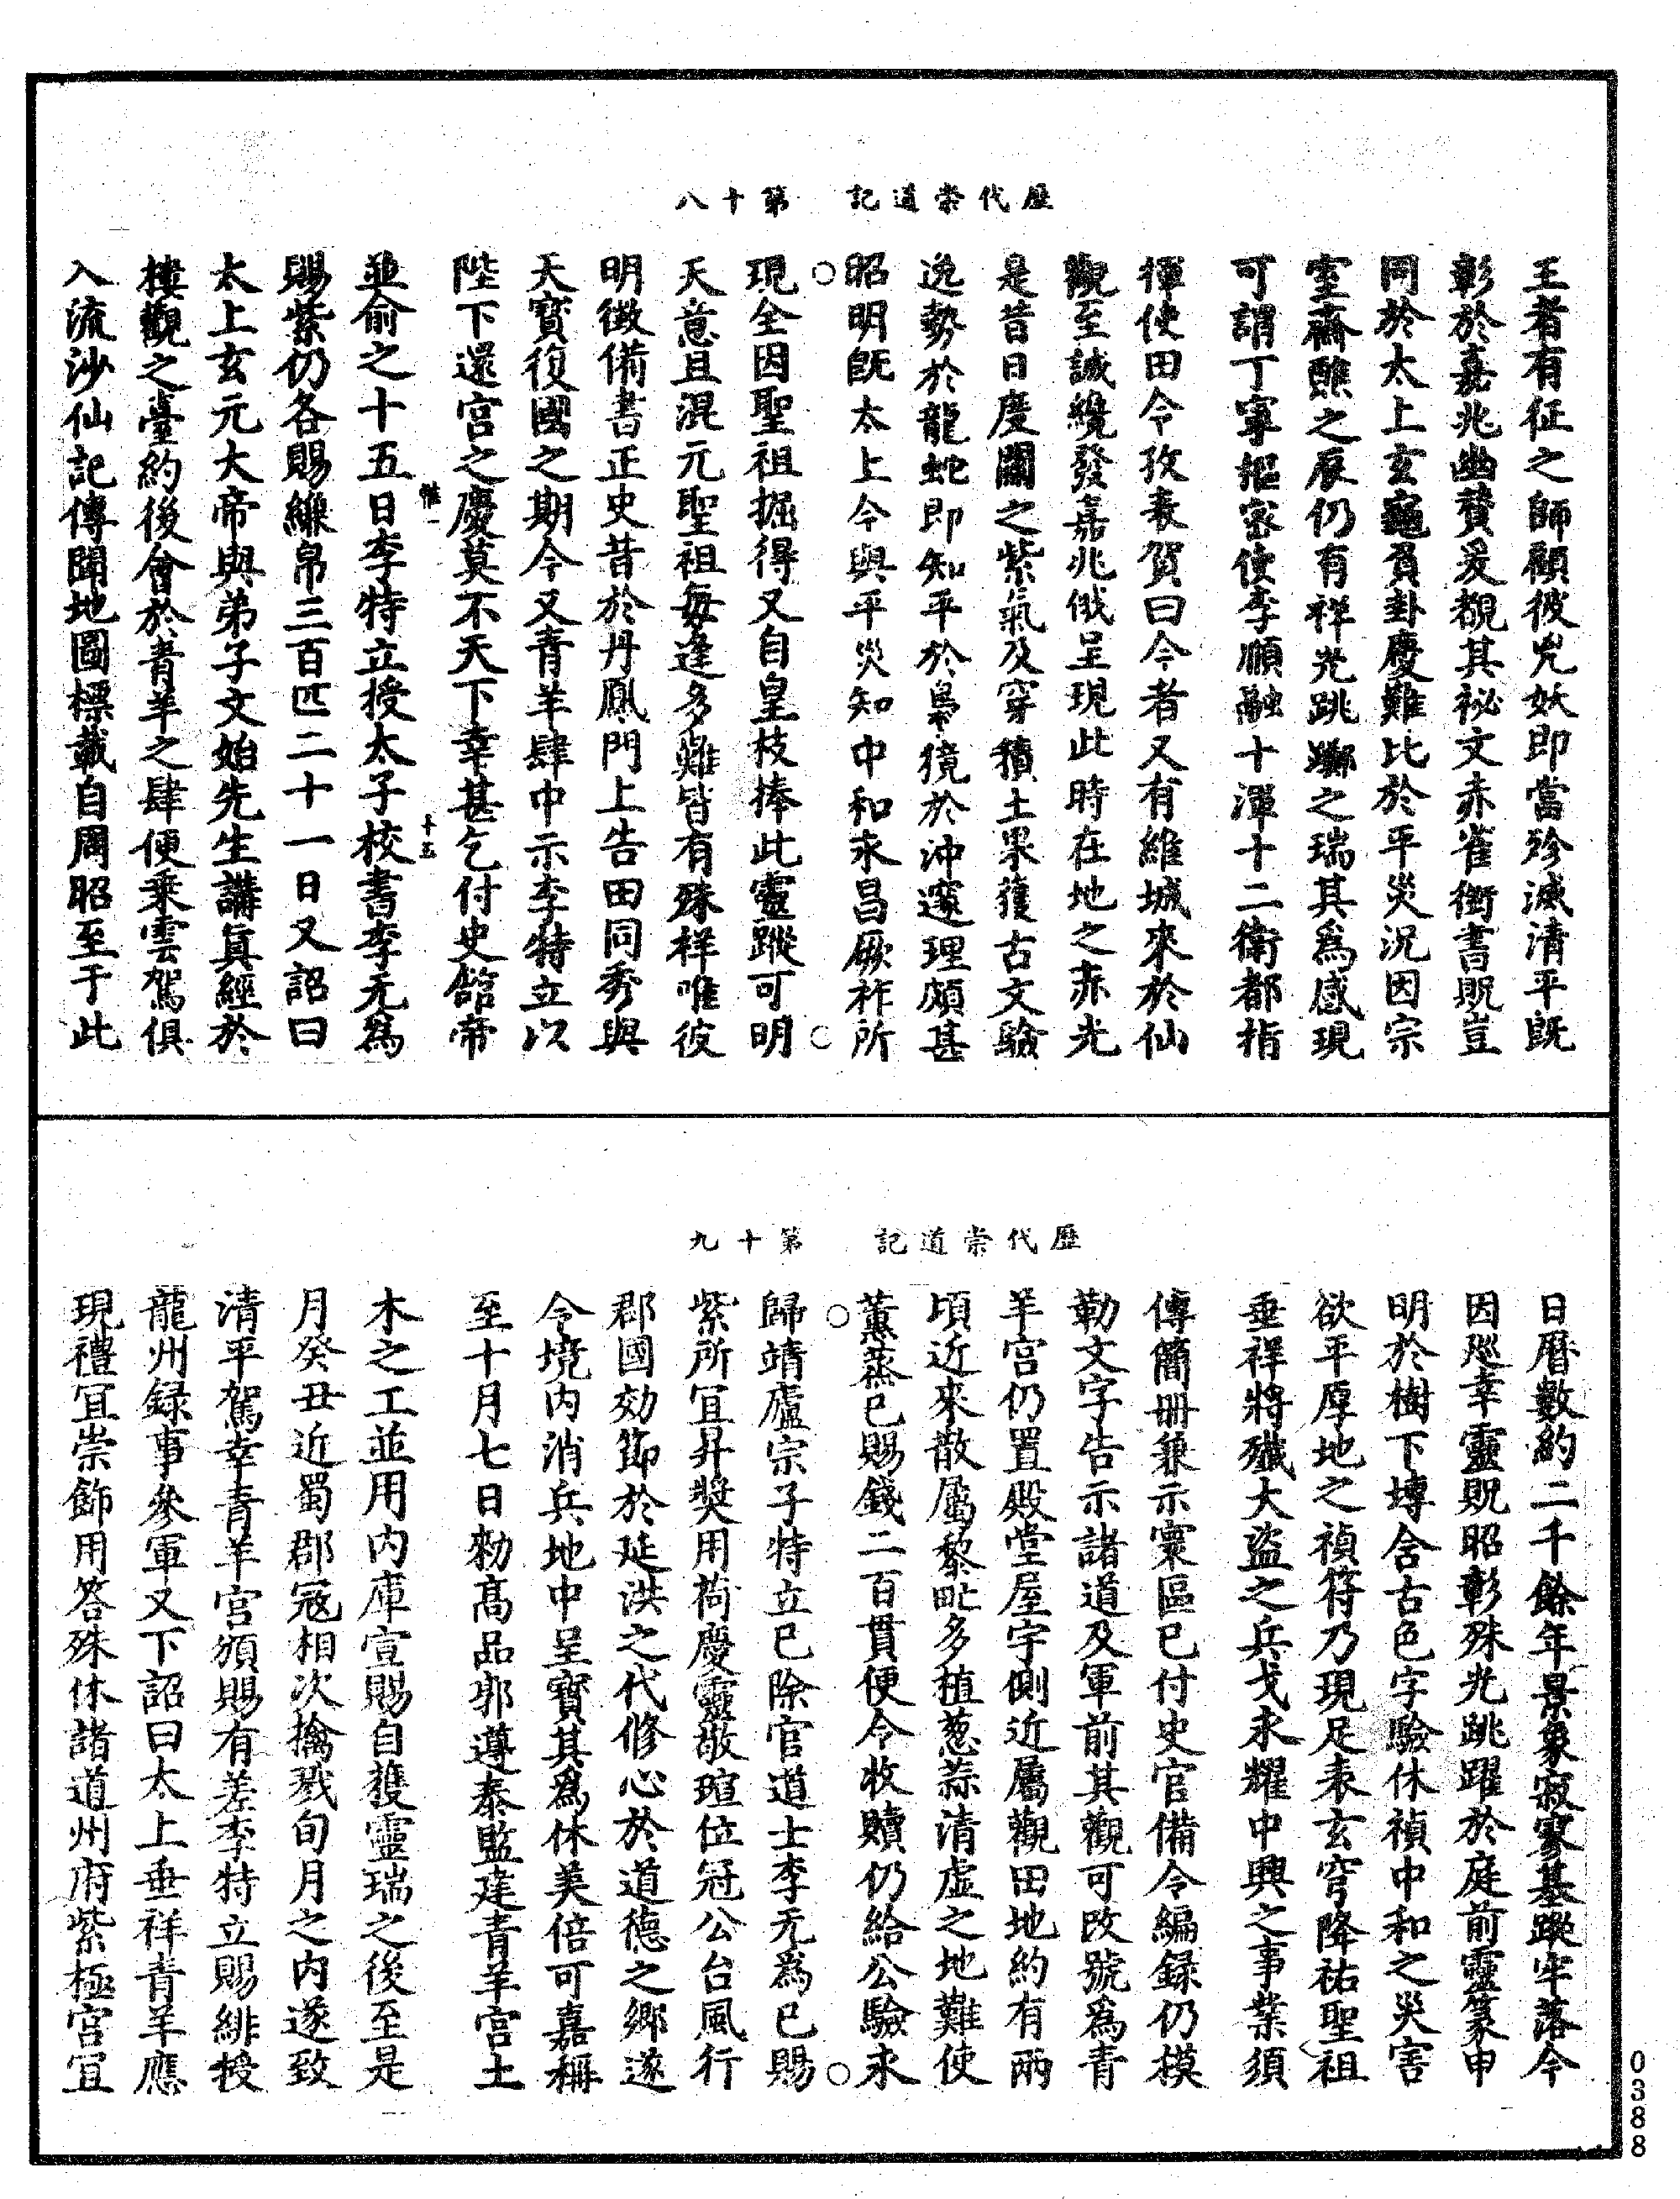 歷代崇道記　第十八
王者有征之師顧彼兇妖即當殄滅清平旣
彰於嘉兆幽賛爰覩其祕文赤雀銜書貺豈
同於太上玄龜負卦慶難比於平災況因宗
室齋醮之辰仍有祥光跳躑之瑞其爲感現
可謂丁寧樞密使李順融十渾十二衛都指
揮使田令孜表賀曰今者又有維城來於仙
觀至誠纔發嘉兆俄呈現此時在地之赤光
是昔日度關之紫氣及穿積土果獲古文驗
逸勢於龍蛇即知平於梟獍於沖邃理頗甚
昭明旣太上令與平災知中和永昌厥祚所
現全因聖祖掘得又自皇枝捧此靈蹤可明
天意且混元聖祖每逢多難皆有殊祥唯彼
明徵備書正史昔於丹鳳門上告田同秀與
天寳復國之期今又青羊肆中示李特立以
陛下還宮之慶莫不天下幸甚乞付史館帝
惟一
十五
並俞之十五日李特立授太子校書李无爲
賜紫仍各賜縑帛三百匹二十一日又詔曰
太上玄元大帝與弟子文始先生講眞經於
樓觀之臺約後會於青羊之肆便乗雲駕俱
入流沙仙記傳聞地圖標載自周昭至于此
歷代崇道記　第十九
日曆數約二千餘年景象寂寥基蹤牢落今
因廵幸靈貺昭彰殊光跳躍於庭前靈篆申
明於樹下塼含古色字驗休禎中和之災害
欲平厚地之禎符乃現足表玄穹降祐聖祖
垂祥將殲大盜之兵戈永耀中興之事業須
傳簡冊兼示寰區已付史官備令編録仍模
勒文字告示諸道及軍前其觀可改號爲青
羊宮仍置殿堂屋宇側近屬觀田地約有兩
頃近來散屬黎甿多植葱蒜清虛之地難使
薰蒸已賜錢二百貫便令收贖仍給公驗永
歸靖廬宗子特立已除官道士李无爲已賜
紫所冝昇奬用荷慶靈敬瑄位冠公台風行
郡國効節於延洪之代修心於道德之鄉遂
令境內消兵地中呈寳其爲休美倍可嘉稱
至十月七日勑高品郭遵泰監建青羊宮土
木之工並用內庫宣賜自獲靈瑞之後至是
月癸丑近蜀郡冦相次擒戮旬月之內遂致
清平駕幸青羊宮頒賜有差李特立賜緋授
龍州録事參軍又下詔曰太上垂祥青羊應
現禮冝崇飾用答殊休諸道州府紫極宮冝
0388